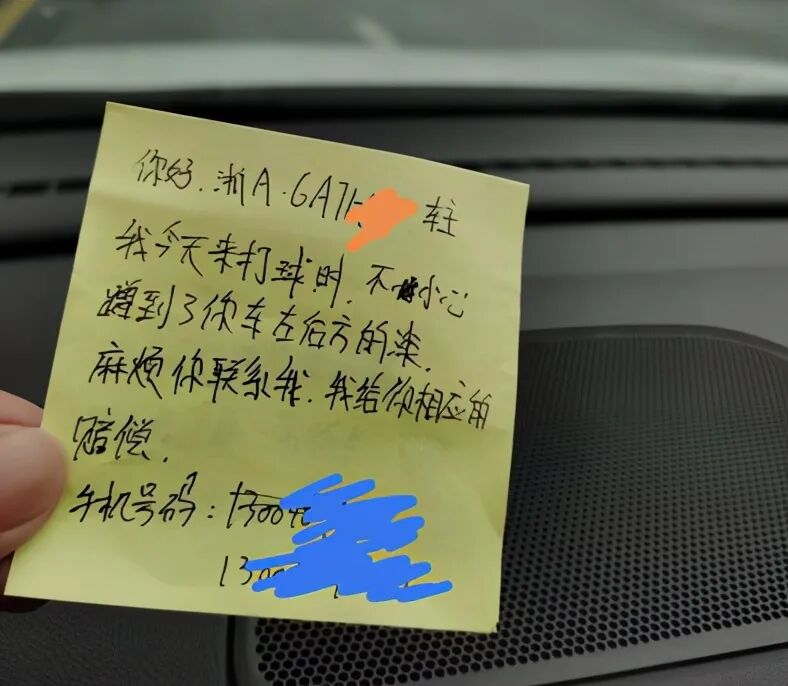 你好.浙A·6A7 车主
我今天来打球时.不小心
蹭到了你车左后方的漆.
麻烦你联系我.我给你相应的
赔偿.
手机号码:1300
130